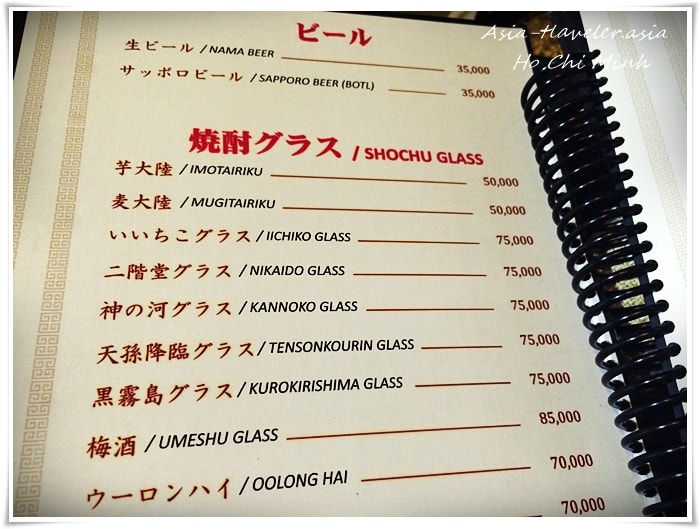 Asia-traveler.asia
Ho Chi Minh
ビール
生ビール / NAMA BEER 35,000
サッポロビール / SAPPORO BEER (BOTL) 35,000
焼酎グラス / SHOCHU GLASS
芋大陸 / IMOTAIRIKU 50,000
麦大陸 / MUGITAIRIKU 50,000
いいちこグラス / IICHIKO GLASS 75,000
二階堂グラス / NIKAIDO GLASS 75,000
神の河グラス / KANNOKO GLASS 75,000
天孫降臨グラス / TENSONKOURIN GLASS 75,000
黒霧島グラス / KUROKIRISHIMA GLASS 75,000
梅酒 / UMESHU GLASS 85,000
ウーロンハイ / OOLONG HAI 70,000
70,000